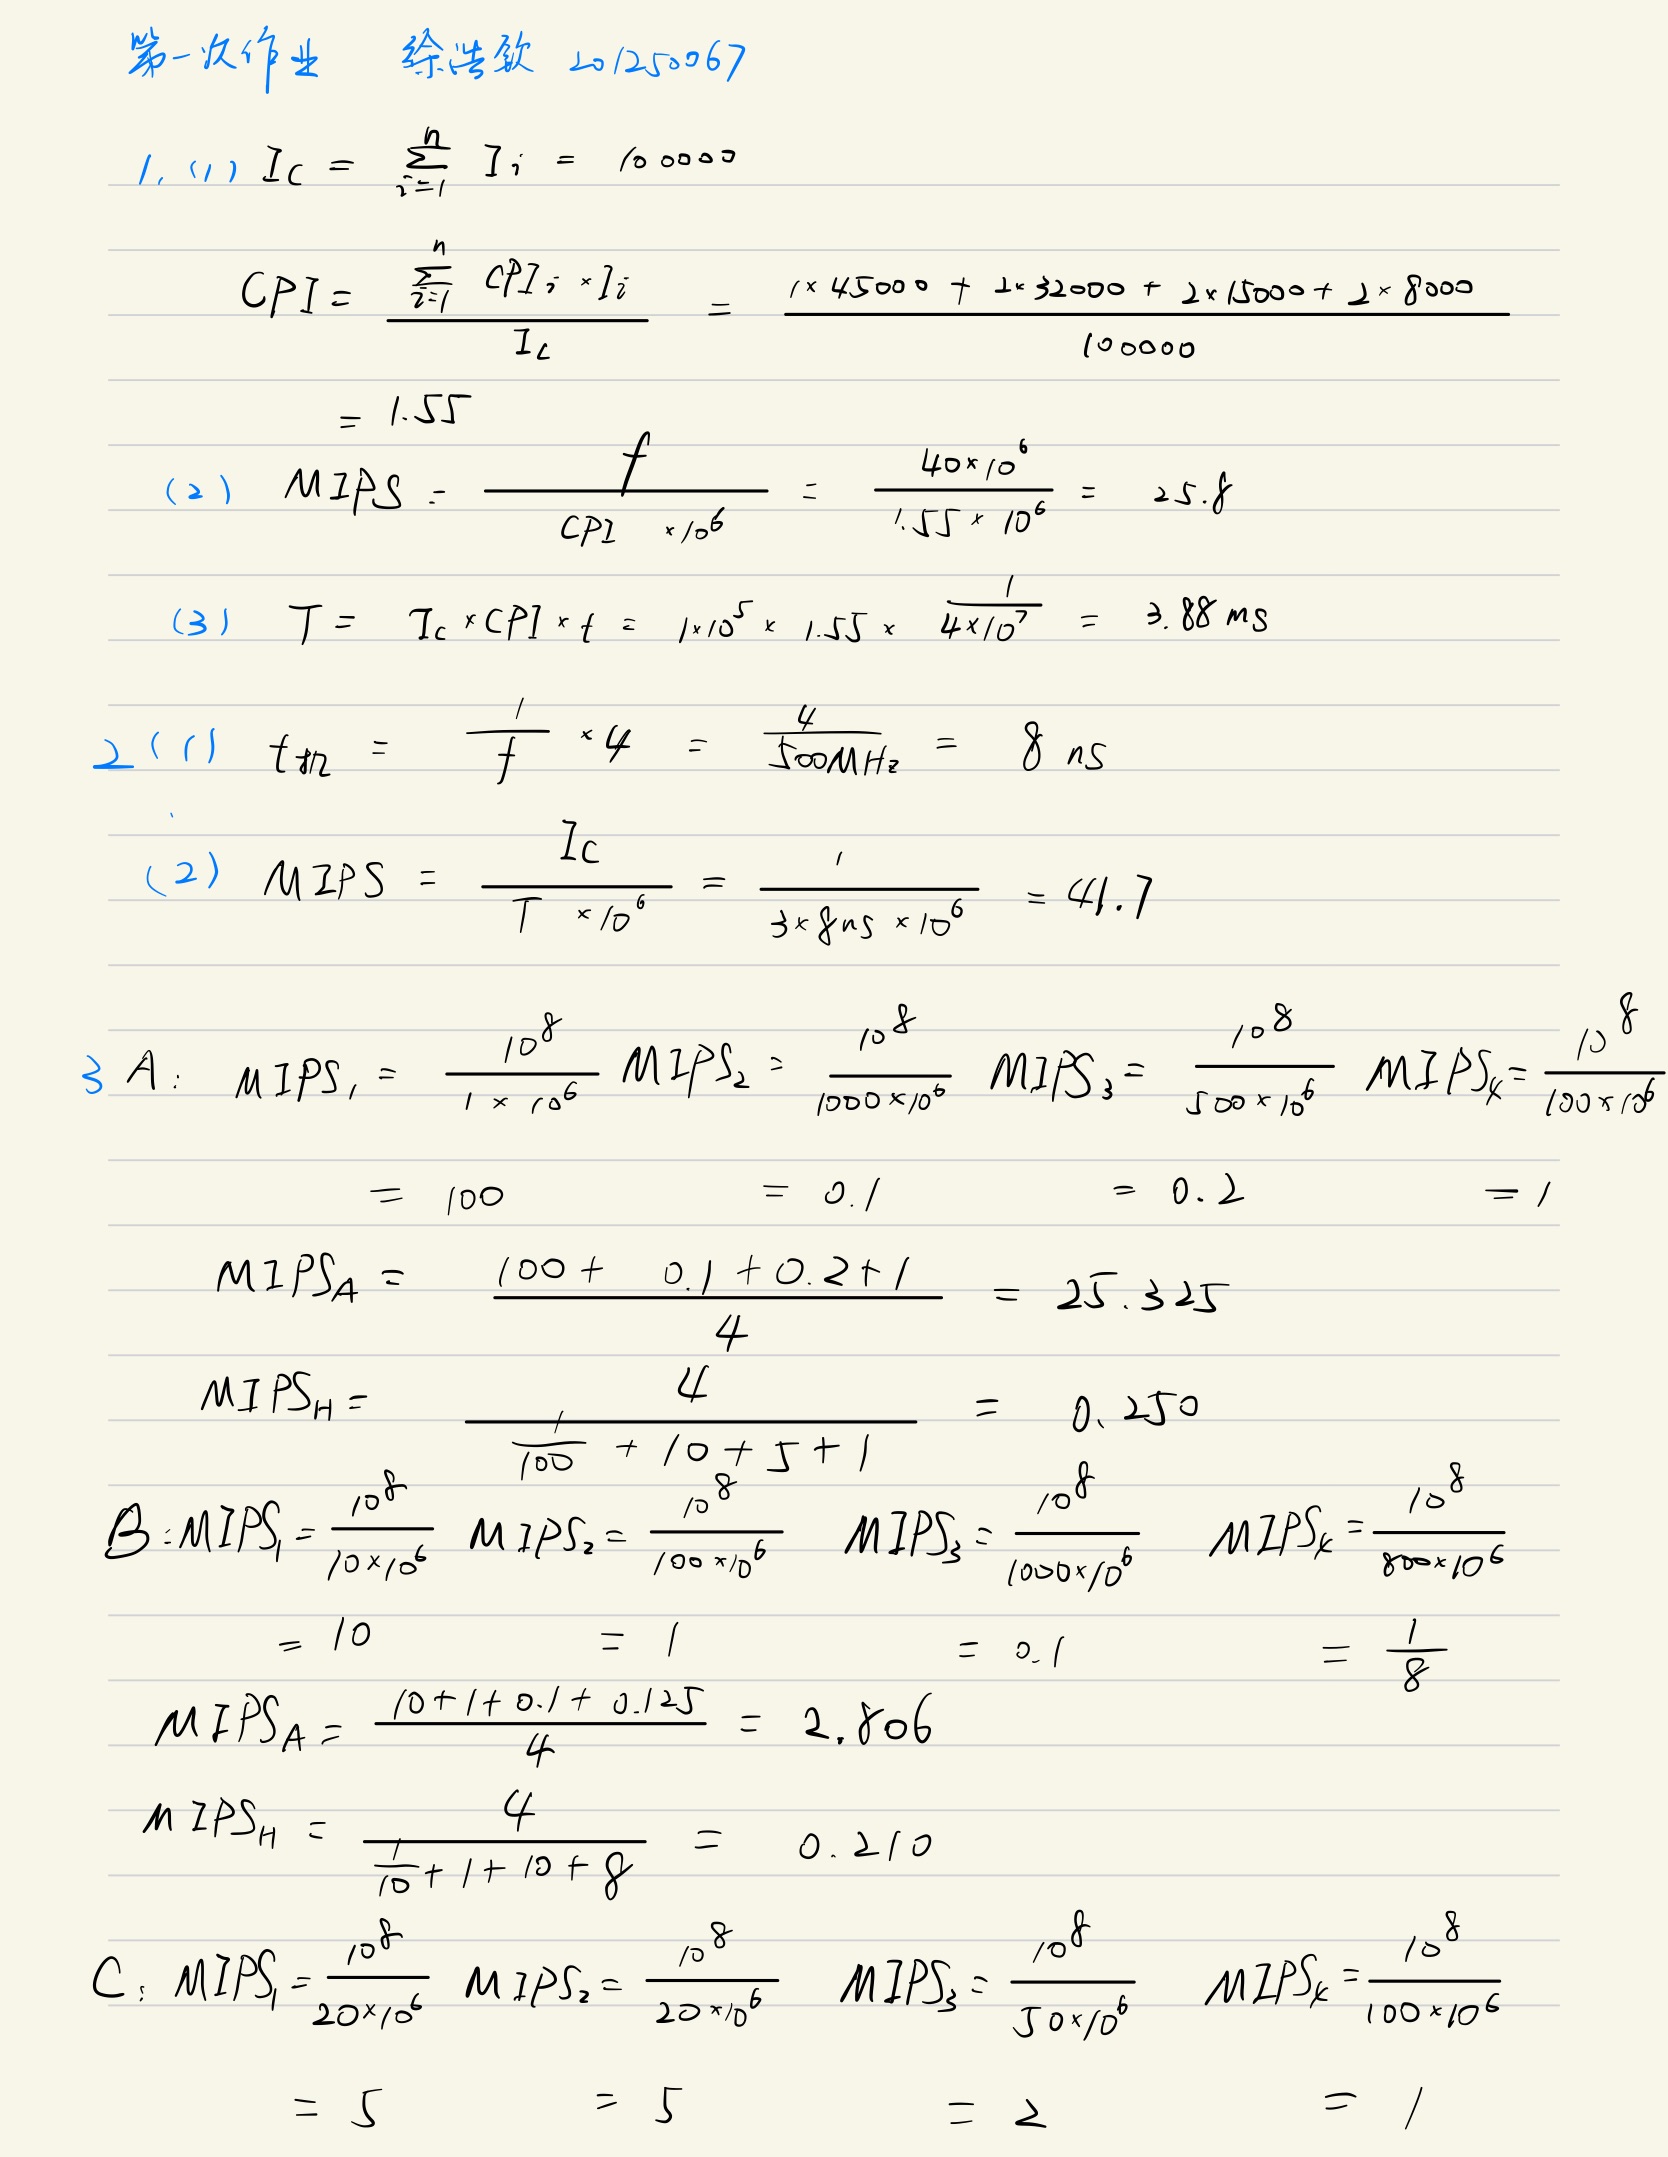 第一次作业 徐浩钦 201250067
1. (1) Ic = \sum_{i=1}^{n} Ii = 100000
CPI = \frac{\sum_{i=1}^{n} CPIi × Ii}{Ic} = \frac{1×45000 + 2×32000 + 2×15000 + 2×8000}{100000}
= 1.55
(2) MIPS = \frac{f}{CPI ×10^6} = \frac{40×10^6}{1.55×10^6} = 25.8
(3) T = Ic × CPI × t = 1×10^5 × 1.55 × \frac{1}{4×10^7} = 3.88 ms
2 (1) t = \frac{1}{f} ×4 = \frac{4}{500MHz} = 8 ns
(2) MIPS = \frac{Ic}{T ×10^6} = \frac{1}{3×8ns ×10^6} = 41.7
3 A: MIPS_1 = \frac{10^8}{1×10^6} MIPS_2 = \frac{10^8}{1000×10^6} MIPS_3 = \frac{10^8}{500×10^6} MIPS_4 = \frac{10^8}{100×10^6}
= 100 = 0.1 = 0.2 = 1
MIPS_A = \frac{100 + 0.1 + 0.2 + 1}{4} = 25.325
MIPS_H = \frac{4}{\frac{1}{100} + 10 + 5 + 1} = 0.250
B: MIPS_1 = \frac{10^8}{10×10^6} MIPS_2 = \frac{10^8}{100×10^6} MIPS_3 = \frac{10^8}{1000×10^6} MIPS_4 = \frac{10^8}{800×10^6}
= 10 = 1 = 0.1 = \frac{1}{8}
MIPS_A = \frac{10 + 1 + 0.1 + 0.125}{4} = 2.806
MIPS_H = \frac{4}{\frac{1}{10} + 1 + 10 + 8} = 0.210
C: MIPS_1 = \frac{10^8}{20×10^6} MIPS_2 = \frac{10^8}{20×10^6} MIPS_3 = \frac{10^8}{50×10^6} MIPS_4 = \frac{10^8}{100×10^6}
= 5 = 5 = 2 = 1